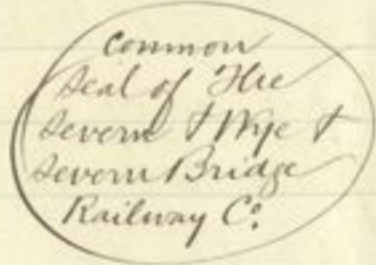 Common
Seal of The
Severn & Wye &
Severn Bridge
Railway Co.